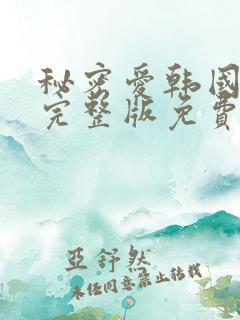 秘密爱韩国
完整版免费
亞舒然
未任同意禁止转载